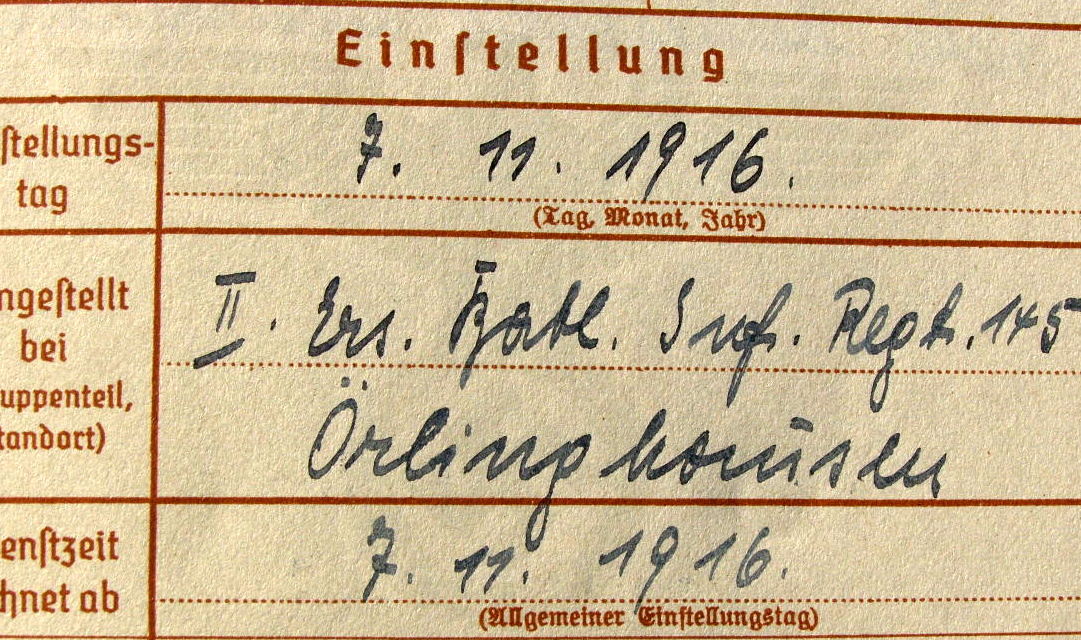 Einstellung
stellungs-
tag
7. 11. 1916.
(Tag, Monat, Jahr)
ngestellt
bei
uppenteil,
tandort)
II. Ers. Batl. Inf. Regt. 145
Örlinghausen
enstzeit
chnet ab
7. 11. 1916.
(Allgemeiner Einstellungstag)